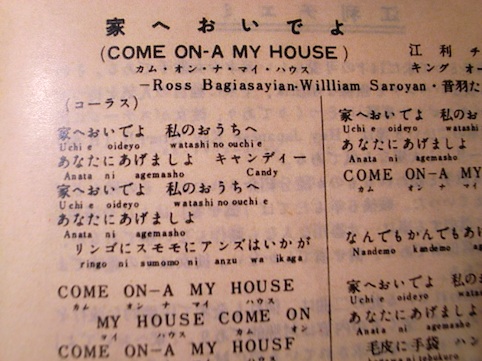 家へおいでよ
(COME ON-A MY HOUSE)
カム・オン・ナ・マイ・ハウス
江利チ
キング オー
—Ross Bagiasayian-Willliam Saroyan・音羽た
(コーラス)
家へおいでよ 私のおうちへ
Uchi e oideyo watashi no ouchi e
あなたにあげましよ キャンディー
Anata ni agemasho Candy
家へおいでよ 私のおうちへ
Uchi e oideyo watashi no ouchi e
あなたにあげましよ
Anata ni agemasho
リンゴにスモモにアンズはいかが
ringo ni sumomo ni anzu wa ikaga
COME ON-A MY HOUSE
カム オン ナ マイ ハウス
MY HOUSE COME ON
マイ ハウス カム オン
COME ON-A MY HOUSE
家へおいでよ 私の
Uchi e oideyo watashi
あなたにあげましよ
Anata ni agemasho
COME ON-A MY
カム オン ナ マイ
なんでもかんでもあ
Nandemo kandemo ag
家へおいでよ 私のお
Uchi e oideyo watashi
あなたにあげましよ
Anata ni agemasho
毛皮に手袋 ハン